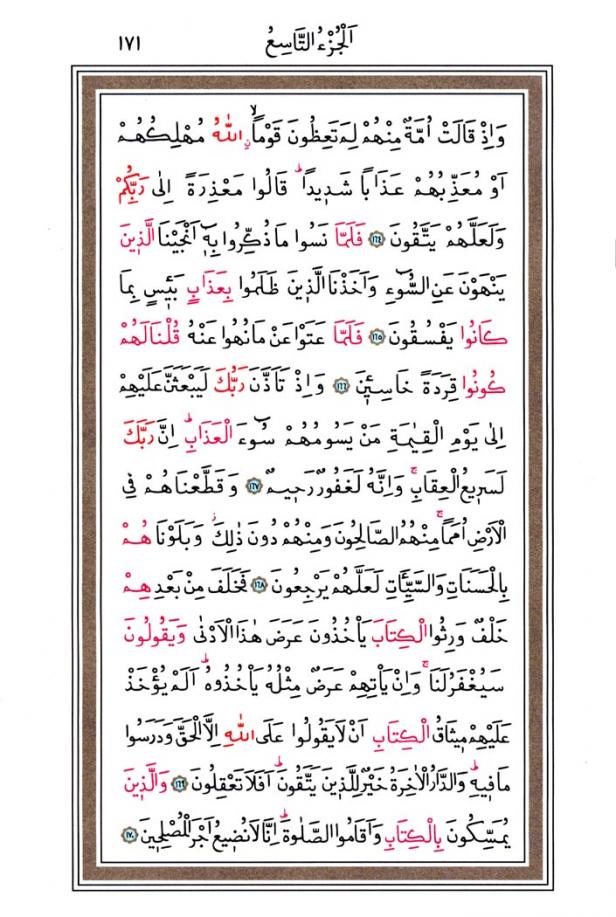 اَلْجُزْءُ التَّاسِعُ ١٧١
وَاِذْ قَالَتْ اُمَّةٌ مِنْهُمْ لِمَ تَعِظُونَ قَوْمًاۙ اللّٰهُ مُهْلِكُهُمْ
اَوْ مُعَذِّبُهُمْ عَذَابًا شَدٖيدًاؕ قَالُوا مَعْذِرَةً اِلٰى رَبِّكُمْ
وَلَعَلَّهُمْ يَتَّقُونَ ﴿١٦٤﴾ فَلَمَّا نَسُوا مَا ذُكِّرُوا بِهٖٓ اَنْجَيْنَا الَّذٖينَ
يَنْهَوْنَ عَنِ السُّٓوءِ وَاَخَذْنَا الَّذٖينَ ظَلَمُوا بِعَذَابٍ بَـٖٔيسٍ بِمَا
كَانُوا يَفْسُقُونَ ﴿١٦٥﴾ فَلَمَّا عَتَوْا عَنْ مَا نُهُوا عَنْهُ قُلْنَا لَهُمْ
كُونُوا قِرَدَةً خَاسِـٖٔينَ ﴿١٦٦﴾ وَاِذْ تَاَذَّنَ رَبُّكَ لَيَبْعَثَنَّ عَلَيْهِمْ
اِلٰى يَوْمِ الْقِيٰمَةِ مَنْ يَسُومُهُمْ سُٓوءَ الْعَذَابِؕ اِنَّ رَبَّكَ
لَسَرٖيعُ الْعِقَابِۚ وَاِنَّهُ لَغَفُورٌ رَحٖيمٌ ﴿١٦٧﴾ وَقَطَّعْنَاهُمْ فِي
الْاَرْضِ اُمَمًاۚ مِنْهُمُ الصَّالِحُونَ وَمِنْهُمْ دُونَ ذٰلِكَؗ وَبَلَوْنَاهُمْ
بِالْحَسَنَاتِ وَالسَّيِّـَٔاتِ لَعَلَّهُمْ يَرْجِعُونَ ﴿١٦٨﴾ فَخَلَفَ مِنْ بَعْدِهِمْ
خَلْفٌ وَرِثُوا الْكِتَابَ يَأْخُذُونَ عَرَضَ هٰذَا الْاَدْنٰى وَيَقُولُونَ
سَيُغْفَرُ لَنَاۚ وَاِنْ يَأْتِهِمْ عَرَضٌ مِثْلُهُ يَأْخُذُوهُؕ اَلَمْ يُؤْخَذْ
عَلَيْهِمْ مٖيثَاقُ الْكِتَابِ اَنْ لَا يَقُولُوا عَلَى اللّٰهِ اِلَّا الْحَقَّ وَدَرَسُوا
مَا فٖيهِؕ وَالدَّارُ الْاٰخِرَةُ خَيْرٌ لِلَّذٖينَ يَتَّقُونَؕ اَفَلَا تَعْقِلُونَ ﴿١٦٩﴾ وَالَّذٖينَ
يُمَسِّكُونَ بِالْكِتَابِ وَاَقَامُوا الصَّلٰوةَؕ اِنَّا لَا نُضٖيعُ اَجْرَ الْمُصْلِحٖينَ ﴿١٧٠﴾